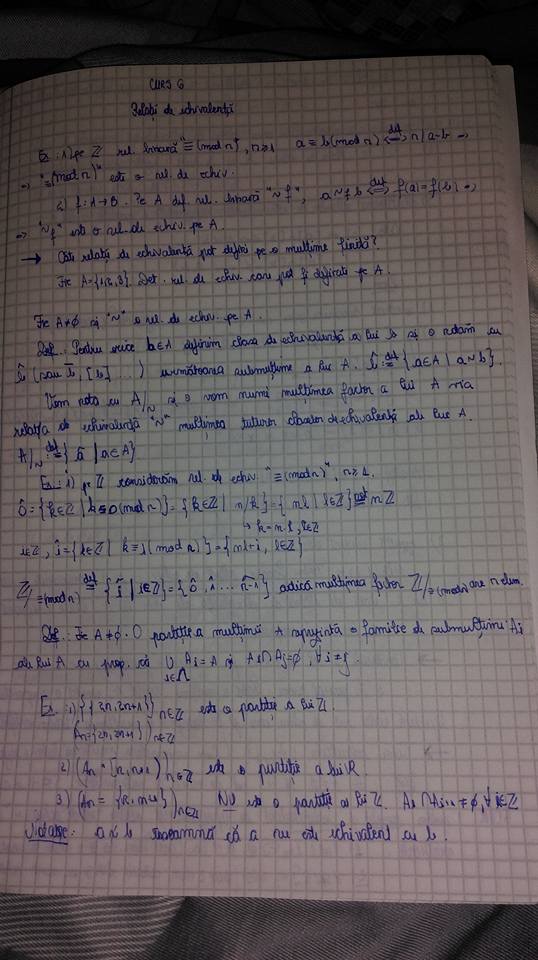 CURS 6
Relații de echivalență
Ex: 1) pe ℤ rel. binară "≡(mod n)", n≥1 a≡b(mod n) ⟺def n/a-b =>
=> "≡(mod n)" este o rel. de echiv.
2) f: A→B. Pe A def. rel. binară "~f", a~f b ⟺def f(a)=f(b) =>
=> "~f" este o rel. de echiv. pe A.
→ Câte relații de echivalență pot defini pe o mulțime finită?
Fie A={1,2,3}. Det. rel. de echiv. care pot fi definite pe A.
Fie A≠∅ și "~" o rel. de echiv. pe A.
Def: Pentru orice b∈A definim clasa de echivalență a lui b și o notăm cu
b̂ (sau b̄, [b] ...) următoarea submulțime a lui A. b̂ =def {a∈A | a~b}.
Vom nota cu A/~ și o vom numi mulțimea factor a lui A
relația de echivalență "~" mulțimea tuturor claselor de echivalență ale lui A.
A/~ =def {â | a∈A}
Ex: 1) pe ℤ considerăm rel. de echiv. "≡(mod n)", n≥1.
0̂={k∈ℤ | k≡0(mod n)}={k∈ℤ | n/k}={nl | l∈ℤ} =not nℤ
↳ k=n·l, l∈ℤ
i∈ℤ, î={k∈ℤ | k≡i(mod n)}={nl+i, l∈ℤ}
ℤ/≡(mod n) =def {î | i∈ℤ}={0̂, 1̂ ... n-1̂} adică mulțimea factor ℤ/≡(mod n) are n elem.
Def: Fie A≠∅. O partiție a mulțimii A reprezintă o familie de submulțimi Ai
ale lui A cu prop. că ∪ Ai=A și Ai∩Aj=∅, ∀ i≠j.
Ex: 1) {{2n, 2n+1}} n∈ℤ este o partiție a lui ℤ.
(An={2n, 2n+1}) n∈ℤ
2) (An=[n, n+1)) n∈ℤ este o partiție a lui ℝ.
3) (An={n, n+1}) n∈ℤ NU este o partiție a lui ℤ. Ai∩Ai+1≠∅, ∀ i∈ℤ
Notație: a≁b înseamnă că a nu este echivalent cu b.